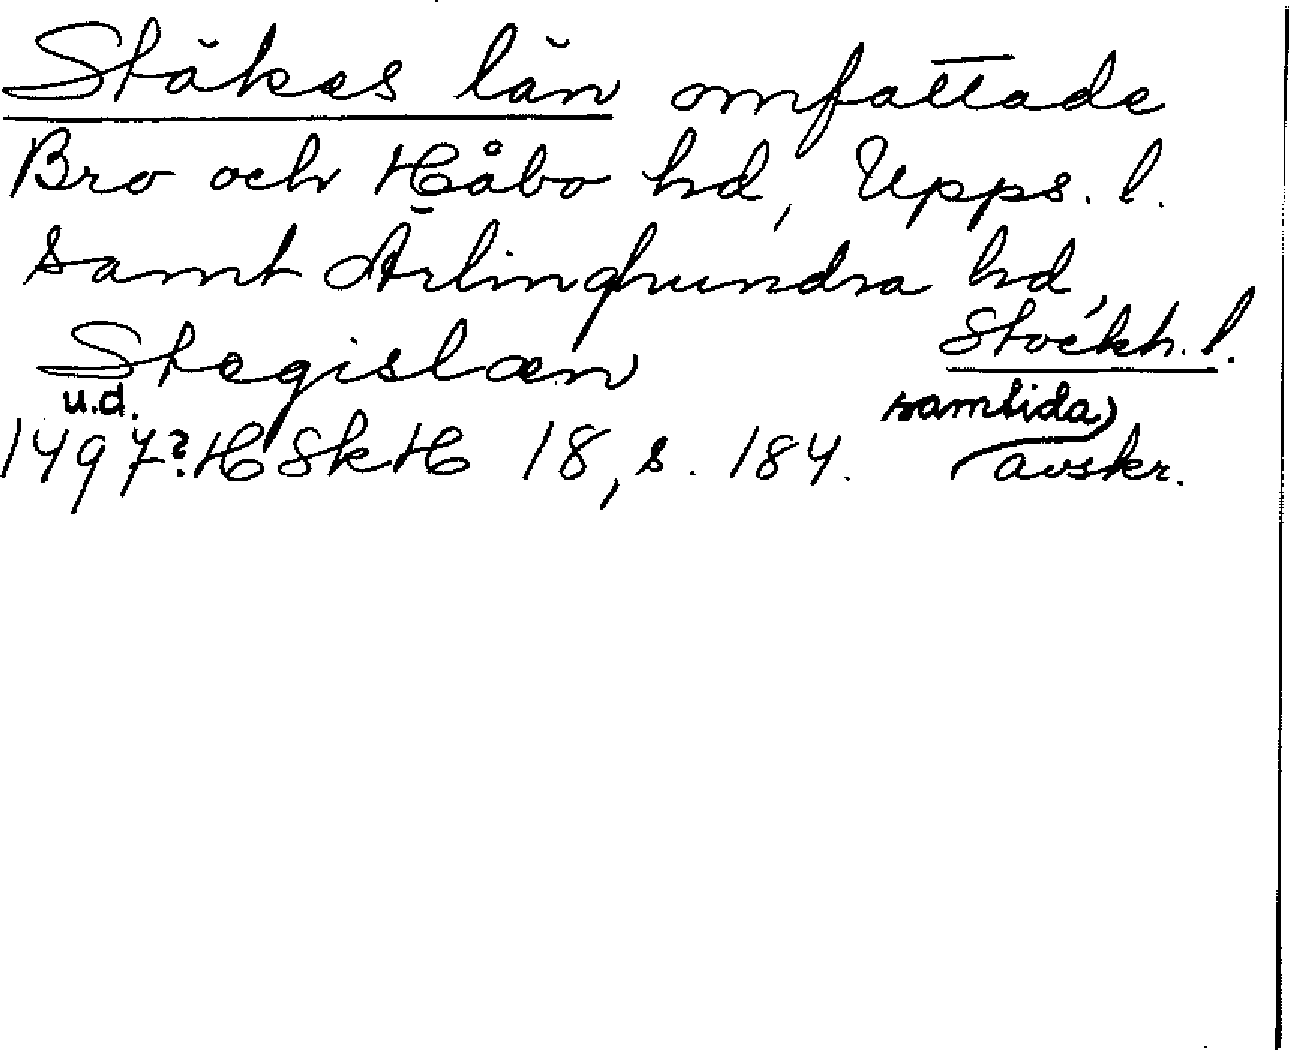 Stäkes län omfattade
Bro och Håbo hd, Upps. l.
samt Ärlinghundra hd,
Stockh. l.
Stegislæn
u.d.
samtida
1497? HSkH 18, s. 184. avskr.